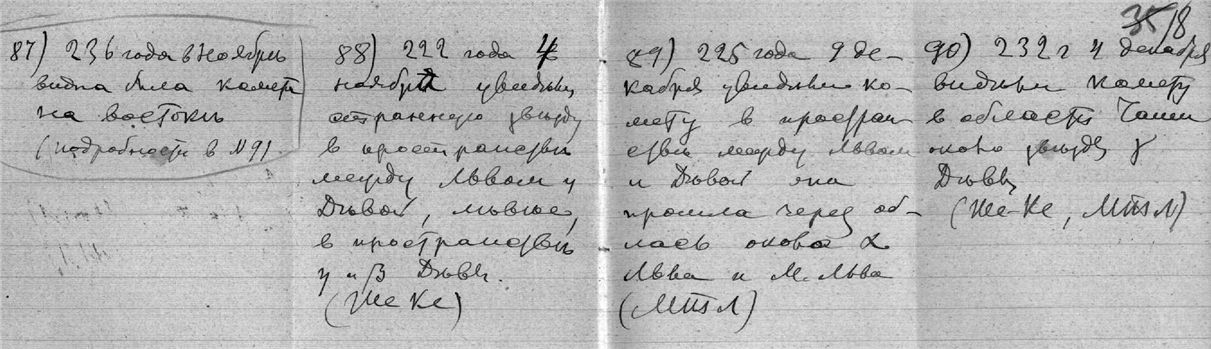 35/8
87) 236 года в Ноябрѣ
видна была комета
на востокѣ
(подробности в №91
88) 222 года 4
ноября увидѣли
странную звѣзду
в пространствѣ
между Львом и
Дѣвой,
в пространствѣ
η и β Дѣвы.
(Ше Ке)
89) 225 года 9 де-
кабря увидѣли ко-
мету в простран
ствѣ между Львом
и Дѣвой она
прошла через об-
лась около α
Льва и М. Льва
(МТЛ)
90) 232 г 4 декабря
видѣли комету
в области Чаши
около звѣзды γ
Дѣвы
(Ше-Ке, МТЛ)